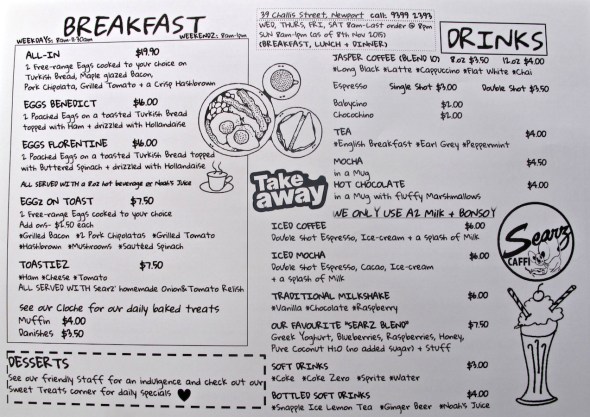 BREAKFAST
WEEKDAYS: 8am-11.30am WEEKENDZ: 8am-1pm
ALL-IN $19.90
2 Free-range Eggs cooked to your choice on
Turkish Bread, Maple glazed Bacon,
Pork Chipolata, Grilled Tomato + a Crisp Hashbrown
EGGS BENEDICT $16.00
2 Poached Eggs on a toasted Turkish Bread
topped with Ham + drizzled with Hollandaise
EGGS FLORENTINE $16.00
2 Poached Eggs on a toasted Turkish Bread topped
with Buttered Spinach + drizzled with Hollandaise
ALL SERVED WITH a 8oz hot beverage or Noah's Juice
EGGZ ON TOAST $7.50
2 Free-range Eggs cooked to your choice
Add ons- $1.50 each
*Grilled Bacon *2 Pork Chipolatas *Grilled Tomato
*Hashbrown *Mushrooms *Sautéed Spinach
TOASTIEZ $7.50
*Ham *Cheese *Tomato
ALL SERVED WITH Searz' homemade Onion&Tomato Relish
see our Cloche for our daily baked treats
Muffin $4.00
Danishes $3.50
DESSERTS
See our friendly Staff for an indulgence and check out our
Sweet Treats corner for daily specials
39 Challis Street, Newport call: 9399 2393
WED, THURS, FRI, SAT 8am-Last order @ 8pm
SUN 8am-4pm (as of 8th Nov 2015)
(BREAKFAST, LUNCH + DINNER)
Take
away
DRINKS
JASPER COFFEE (BLEND 10) 8oz $3.50 12oz $4.00
*Long Black *Latte *Cappuccino *Flat White *Chai
Espresso Single Shot $3.00 Double Shot $3.50
Babycino $1.00
Chocochino $2.00
TEA $4.00
*English Breakfast *Earl Grey *Peppermint
MOCHA $4.50
in a Mug
HOT CHOCOLATE $4.00
in a Mug with fluffy Marshmallows
WE ONLY USE A2 Milk + BONSOY
ICED COFFEE $6.00
Double Shot Espresso, Ice-cream + a splash of Milk
ICED MOCHA $6.00
Double Shot Espresso, Cacao, Ice-cream
+ a splash of Milk
TRADITIONAL MILKSHAKE $6.00
*Vanilla *Chocolate *Raspberry
OUR FAVOURITE "SEARZ BLEND" $7.50
Greek Yoghurt, Blueberries, Raspberries, Honey,
Pure Coconut H2O (no added sugar) + Stuff
SOFT DRINKS $3.00
*Coke *Coke Zero *Sprite *Water
BOTTLED SOFT DRINKS $4.00
*Snapple Ice Lemon Tea *Ginger Beer *Noah's Juice
Searz
CAFFI